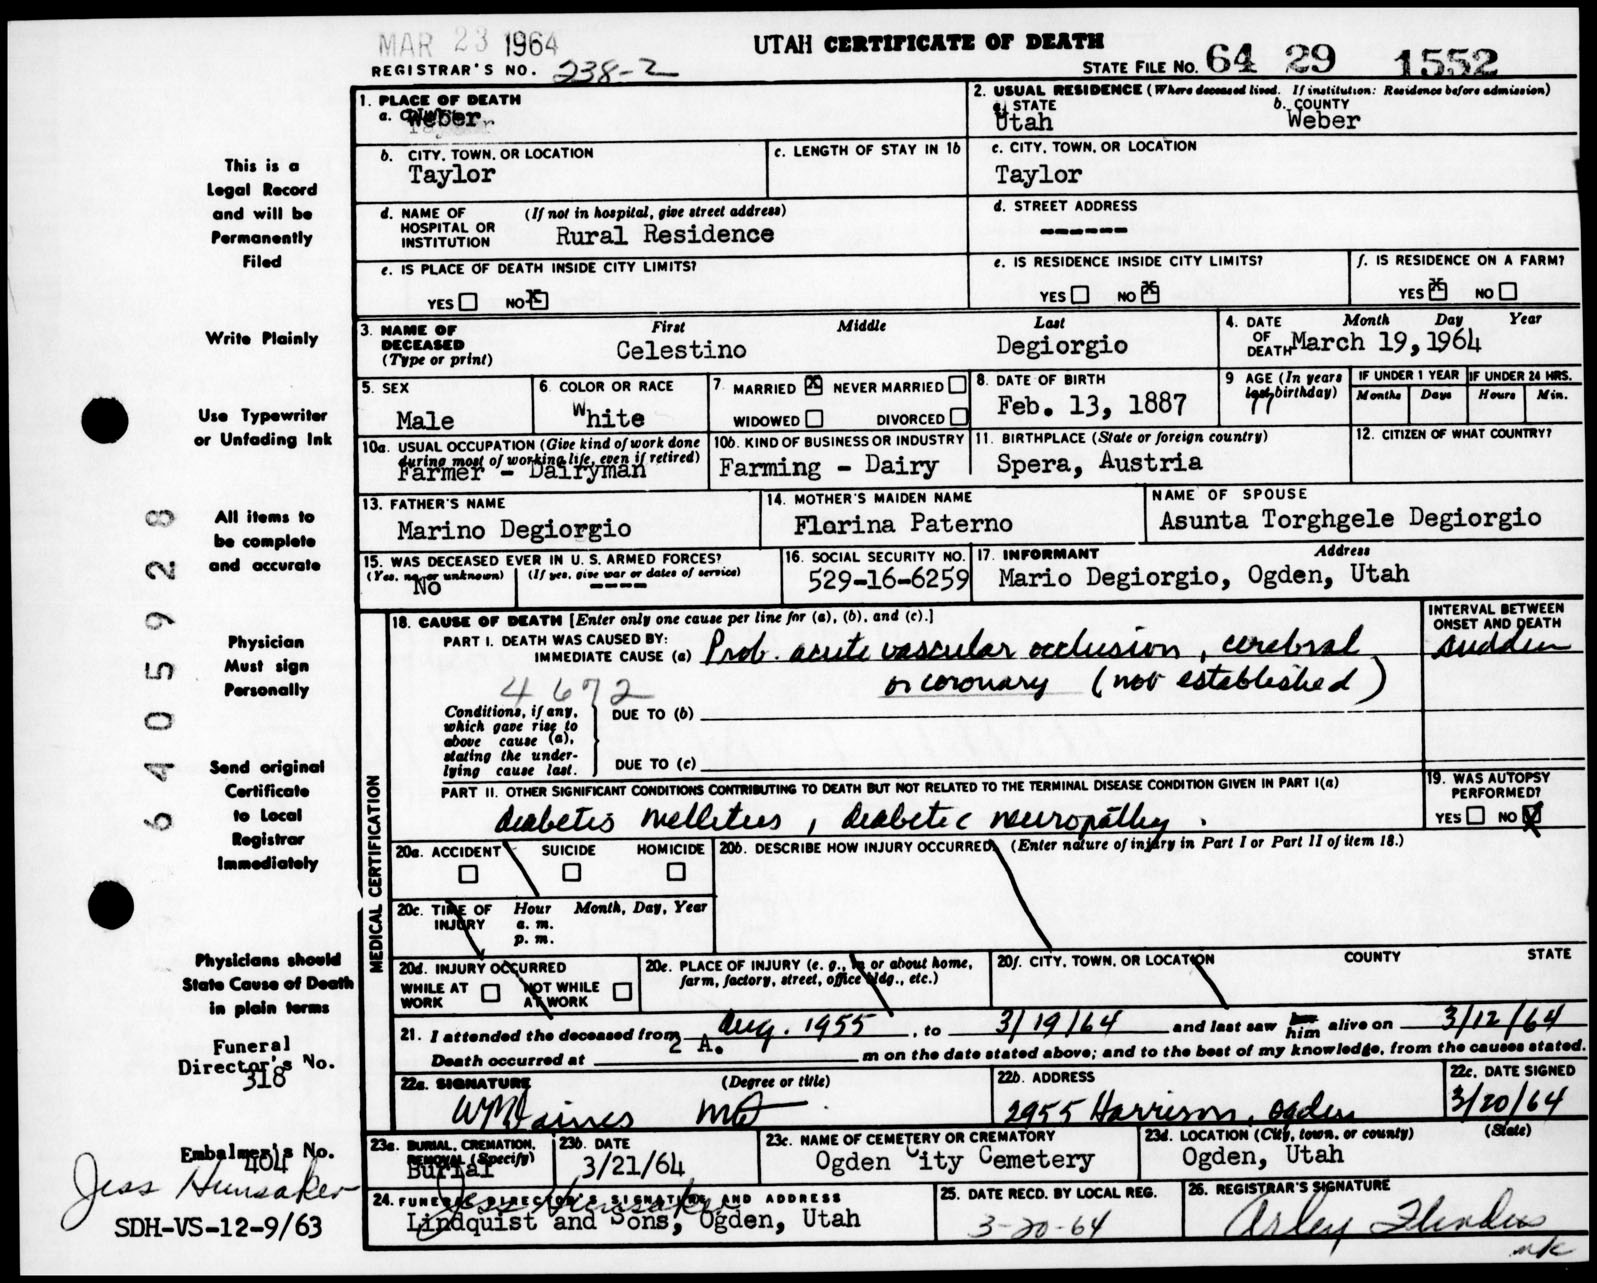 MAR 23 1964
UTAH CERTIFICATE OF DEATH
REGISTRAR'S NO. 238-2
STATE FILE NO. 64 29 1552
This is a
Legal Record
and will be
Permanently
Filed
Write Plainly
Use Typewriter
or Unfading Ink
All items to
be complete
and accurate
Physician
Must sign
Personally
Send original
Certificate
to Local
Registrar
Immediately
Physicians should
State Cause of Death
in plain terms
Funeral
Director's No.
318
Embalmer's No.
404
Jess Hunsaker
SDH-VS-12-9/63
640592 8
1. PLACE OF DEATH
a. COUNTY
Weber
2. USUAL RESIDENCE (Where deceased lived. If institution: Residence before admission)
a. STATE b. COUNTY
Utah Weber
b. CITY, TOWN, OR LOCATION
Taylor
c. LENGTH OF STAY IN 1b
c. CITY, TOWN, OR LOCATION
Taylor
d. NAME OF HOSPITAL OR INSTITUTION (If not in hospital, give street address)
Rural Residence
d. STREET ADDRESS
------
e. IS PLACE OF DEATH INSIDE CITY LIMITS?
YES NO X
e. IS RESIDENCE INSIDE CITY LIMITS?
YES NO X
f. IS RESIDENCE ON A FARM?
YES X NO
3. NAME OF DECEASED (Type or print)
First Middle Last
Celestino Degiorgio
4. DATE OF DEATH Month Day Year
March 19, 1964
5. SEX
Male
6. COLOR OR RACE
White
7. MARRIED X NEVER MARRIED
WIDOWED DIVORCED
8. DATE OF BIRTH
Feb. 13, 1887
9 AGE (In years last birthday)
77
IF UNDER 1 YEAR IF UNDER 24 HRS.
Months Days Hours Min.
10a. USUAL OCCUPATION (Give kind of work done during most of working life, even if retired)
Farmer - Dairyman
10b. KIND OF BUSINESS OR INDUSTRY
Farming - Dairy
11. BIRTHPLACE (State or foreign country)
Spera, Austria
12. CITIZEN OF WHAT COUNTRY?
13. FATHER'S NAME
Marino Degiorgio
14. MOTHER'S MAIDEN NAME
Florina Paterno
NAME OF SPOUSE
Asunta Torghgele Degiorgio
15. WAS DECEASED EVER IN U. S. ARMED FORCES?
(Yes, no, or unknown) (If yes, give war or dates of service)
No ----
16. SOCIAL SECURITY NO.
529-16-6259
17. INFORMANT Address
Mario Degiorgio, Ogden, Utah
MEDICAL CERTIFICATION
18. CAUSE OF DEATH [Enter only one cause per line for (a), (b), and (c).]
INTERVAL BETWEEN ONSET AND DEATH
PART I. DEATH WAS CAUSED BY:
IMMEDIATE CAUSE (a) Prob. acute vascular occlusion, cerebral
sudden
4672 or coronary (not established)
Conditions, if any, which gave rise to above cause (a), stating the underlying cause last.
DUE TO (b)
DUE TO (c)
PART II. OTHER SIGNIFICANT CONDITIONS CONTRIBUTING TO DEATH BUT NOT RELATED TO THE TERMINAL DISEASE CONDITION GIVEN IN PART I(a)
diabetis mellitus, diabetic neuropathy.
19. WAS AUTOPSY PERFORMED?
YES NO X
20a. ACCIDENT SUICIDE HOMICIDE
20b. DESCRIBE HOW INJURY OCCURRED (Enter nature of injury in Part I or Part II of item 18.)
20c. TIME OF INJURY Hour Month, Day, Year
a. m.
p. m.
20d. INJURY OCCURRED
WHILE AT WORK NOT WHILE AT WORK
20e. PLACE OF INJURY (e. g., in or about home, farm, factory, street, office bldg., etc.)
20f. CITY, TOWN, OR LOCATION COUNTY STATE
21. I attended the deceased from Aug. 1955, to 3/19/64 and last saw him alive on 3/12/64
Death occurred at 2 A. m on the date stated above; and to the best of my knowledge, from the causes stated.
22a. SIGNATURE (Degree or title)
MD
22b. ADDRESS
2955 Harrison, Ogden
22c. DATE SIGNED
3/20/64
23a. BURIAL, CREMATION, REMOVAL (Specify)
Burial
23b. DATE
3/21/64
23c. NAME OF CEMETERY OR CREMATORY
Ogden City Cemetery
23d. LOCATION (City, town, or county) (State)
Ogden, Utah
24. FUNERAL DIRECTOR'S SIGNATURE AND ADDRESS
Jess Hunsaker
Lindquist and Sons, Ogden, Utah
25. DATE RECD. BY LOCAL REG.
3-20-64
26. REGISTRAR'S SIGNATURE
Arley Flinders
mk